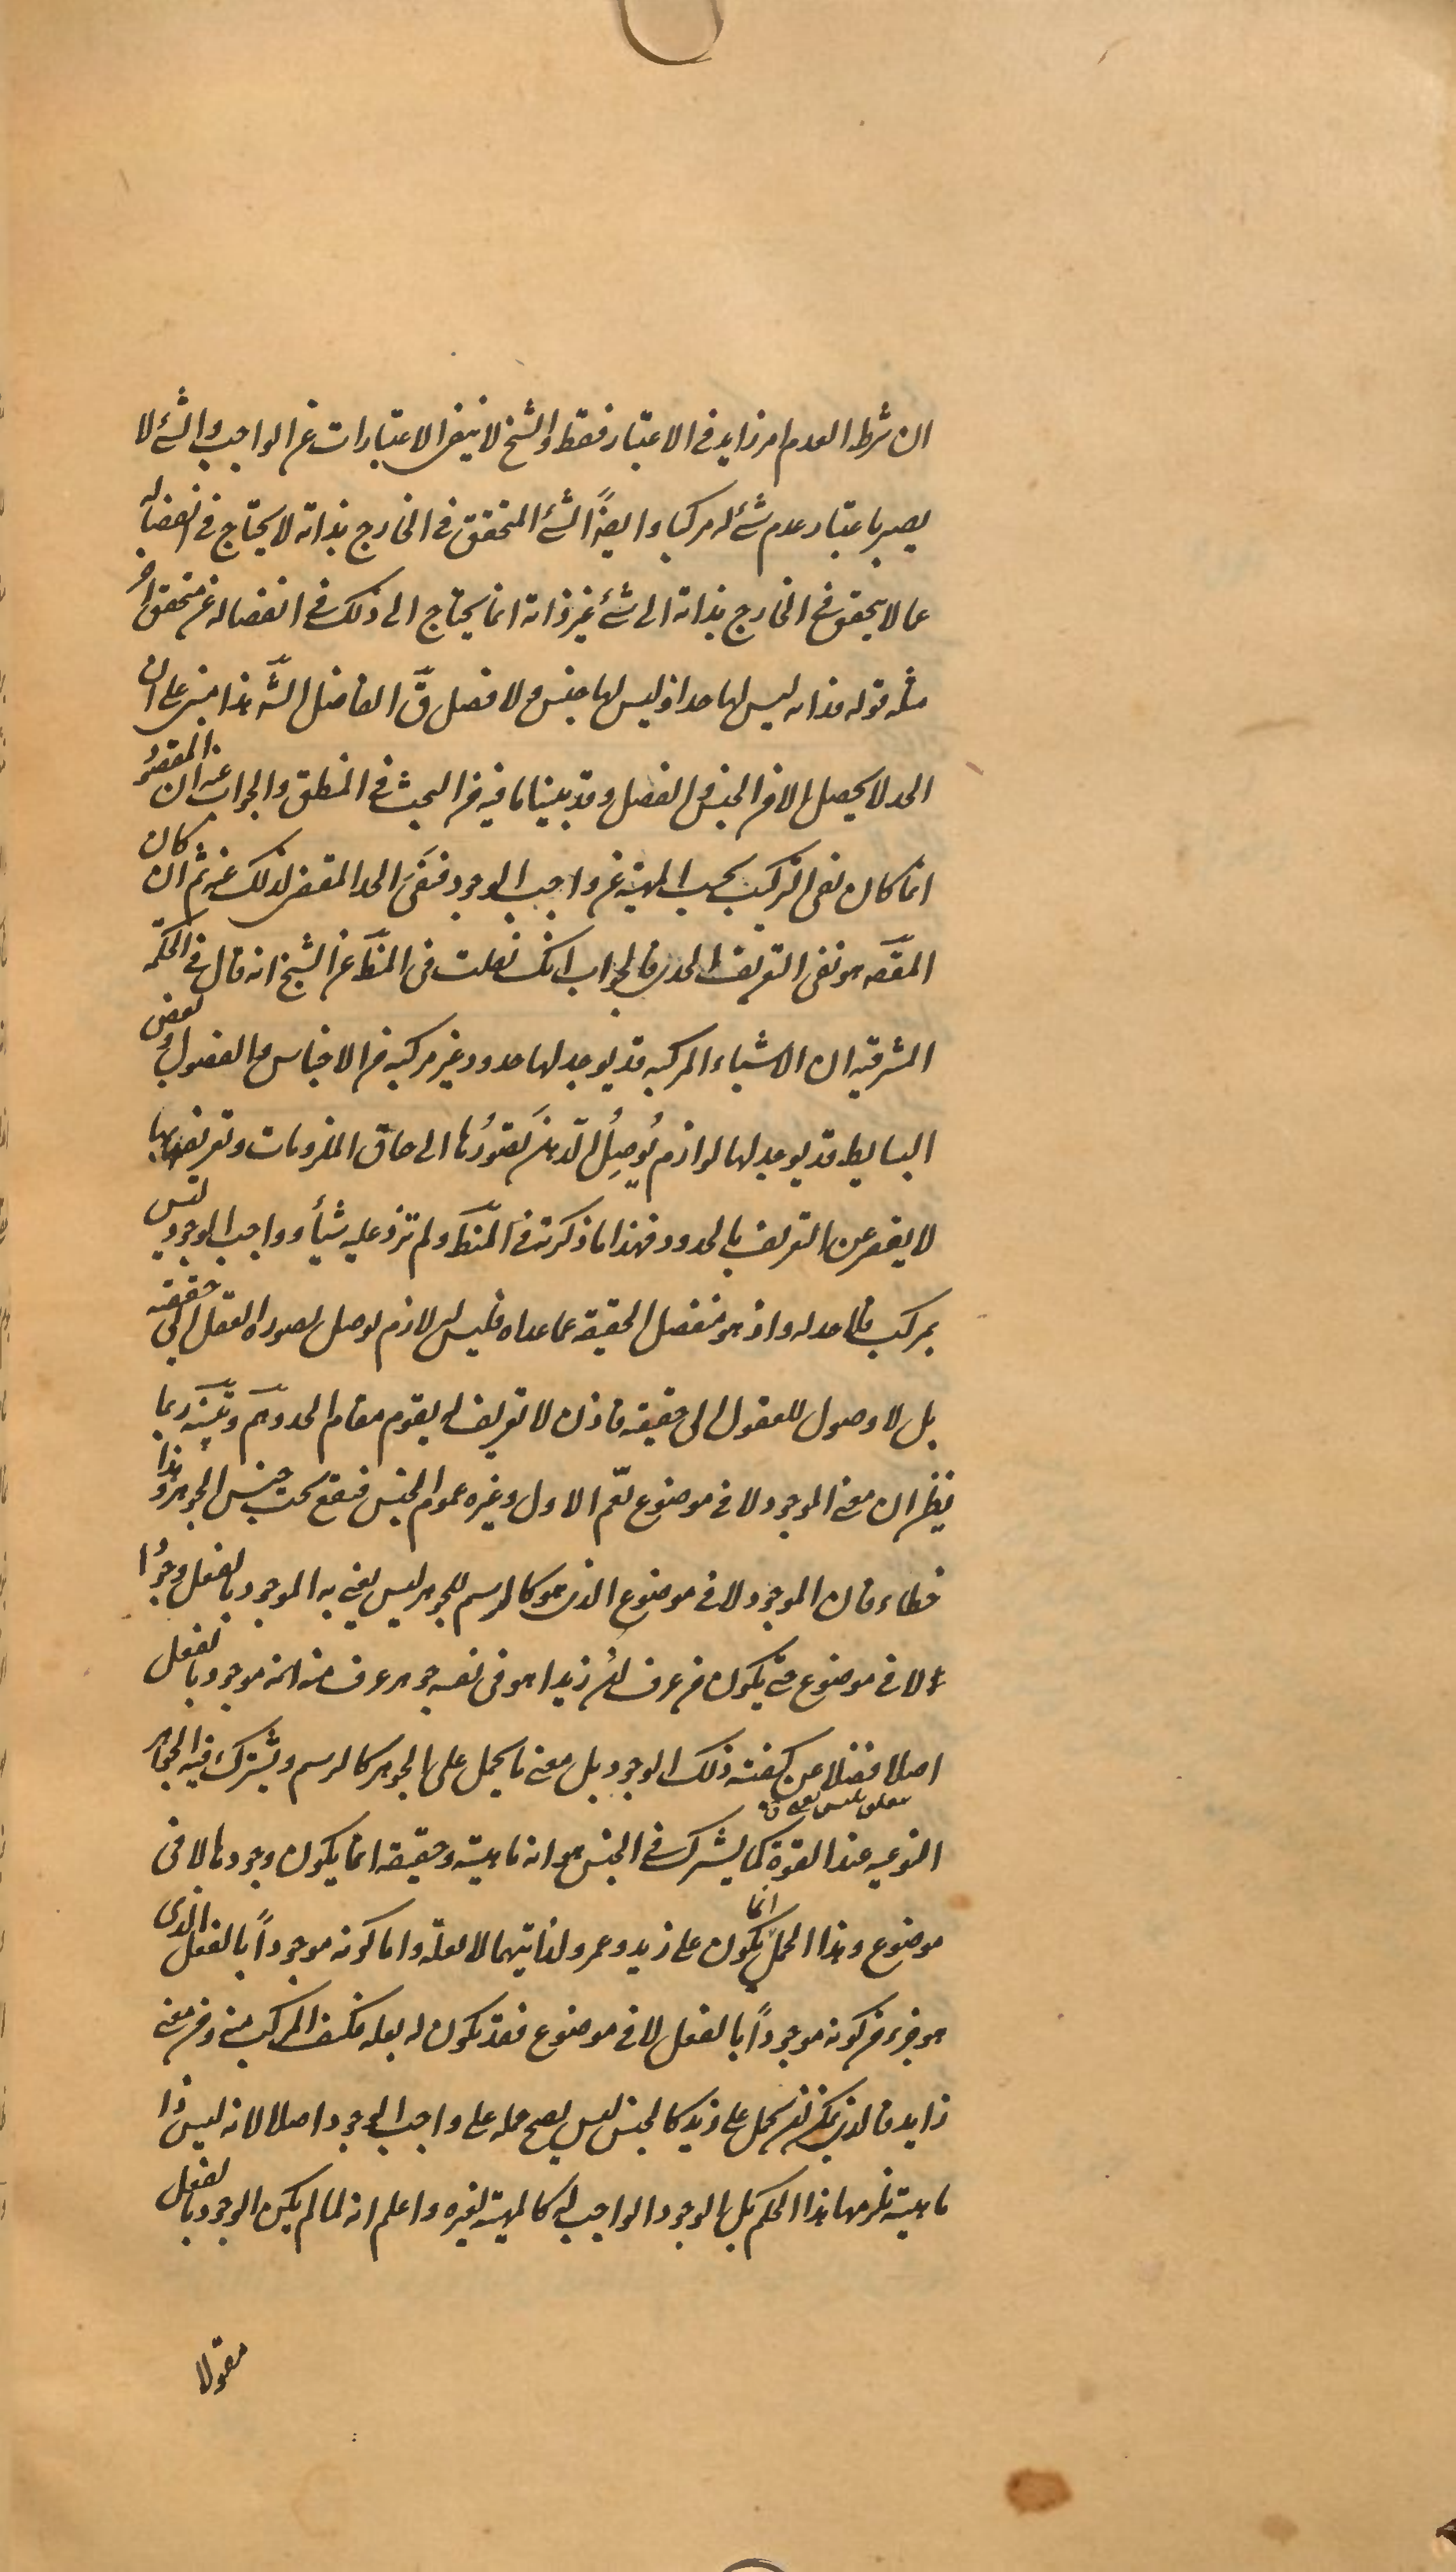 ان شرط العدم امر زايد فى الاعتبار فقط والشيخ لا ينفى الاعتبارات عن الواجب والشئ لا
يصير باعتبار عدم شئ له مركبا وايضاً الشئ المتحقق فى الخارج بذاته لا يحتاج فى انفصاله
عما لا يتحقق فى الخارج بذاته الى شئ غير ذاته انما يحتاج الى ذلك فى انفصاله عن متحقق اخر
مثله قوله فذاته ليس لها حد اذ ليس لها جنس ولا فصل قَ الفاضل الشَّه هذا مبنى على ان
الحد لا يحصل الا من الجنس والفصل وقد بينا ما فيه من البحث فى المنطق والجواب عنه ان المقصود
انما كان نفى التركيب بحسب المهية عن واجب الوجود فنَفَىَ الحد المقتضى لذلك عنه ثم ان كان
المقصَه هو نفى التعريف الحدى فالجواب انك نقلت فى المنطَ عن الشيخ انه قال فى الحكمة
المشرقية ان الاشياء المركبه قد يوجد لها حدود غير مركبه من الاجناس والفصول وبعض
البسايط قد يوجد لها لوازم يُوصِلُ الذهنَ تصَوُّرُها الى حاق الملزومات وتعريفها بها
لا يقصر عن التعريف بالحدود فهذا ما ذكرته فى المنطَ ولم تزد عليه شيأ وواجب الوجود ليس
بمركب فلا حد له واذ هو منفصل الحقيقة عما عداه فليس له لازم يوصل تصوره العقل الى حقيقته
بل لا وصول للعقول الى حقيقته فاذن لا تعريف له يقوم مقام الحد وهَم وتَنبيَه ربما
يظن ان معنى الموجود لا فى موضوع يعّم الاول وغيره عموم الجنس فيقع تحت جنس الجوهر وهذا
خطاء فان الموجود لا فى موضوع الذى هو كالرسم للجوهر ليس يعنى به الموجود بالفعل وجودًا
لا فى موضوع حتى يكون من عرف ان زيدا هو فى نفسه جوهر عرف منه انه موجود بالفعل
اصلا فضلا عن كيفية ذلك الوجود بل معنى ما يحمل على الجوهر كالرسم ويشترك فيه الجواهر
النوعيه عند القوة كما يشترك فى الجنس هو انه ماهية وحقيقة انما يكون وجودها لا فى
موضوع وهذا الحمل انما يكون على زيد وعمرو لذاتيهما لا لعلة واما كونه موجوداً بالفعل الذى
هو جزء من كونه موجوداً بالفعل لا فى موضوع فقد يكون له بعله فكيف المركب منه ومن معنى
زايد فالذى يمكن ان يحمل على زيد كالجنس ليس يصح حمله على واجب الوجود اصلا لانه ليس ذا
ماهية يلزمها هذا الحكم بل الوجود الواجب له كالمهية لغيره واعلم انه لما لم يكن الوجود بالفعل
مقولا